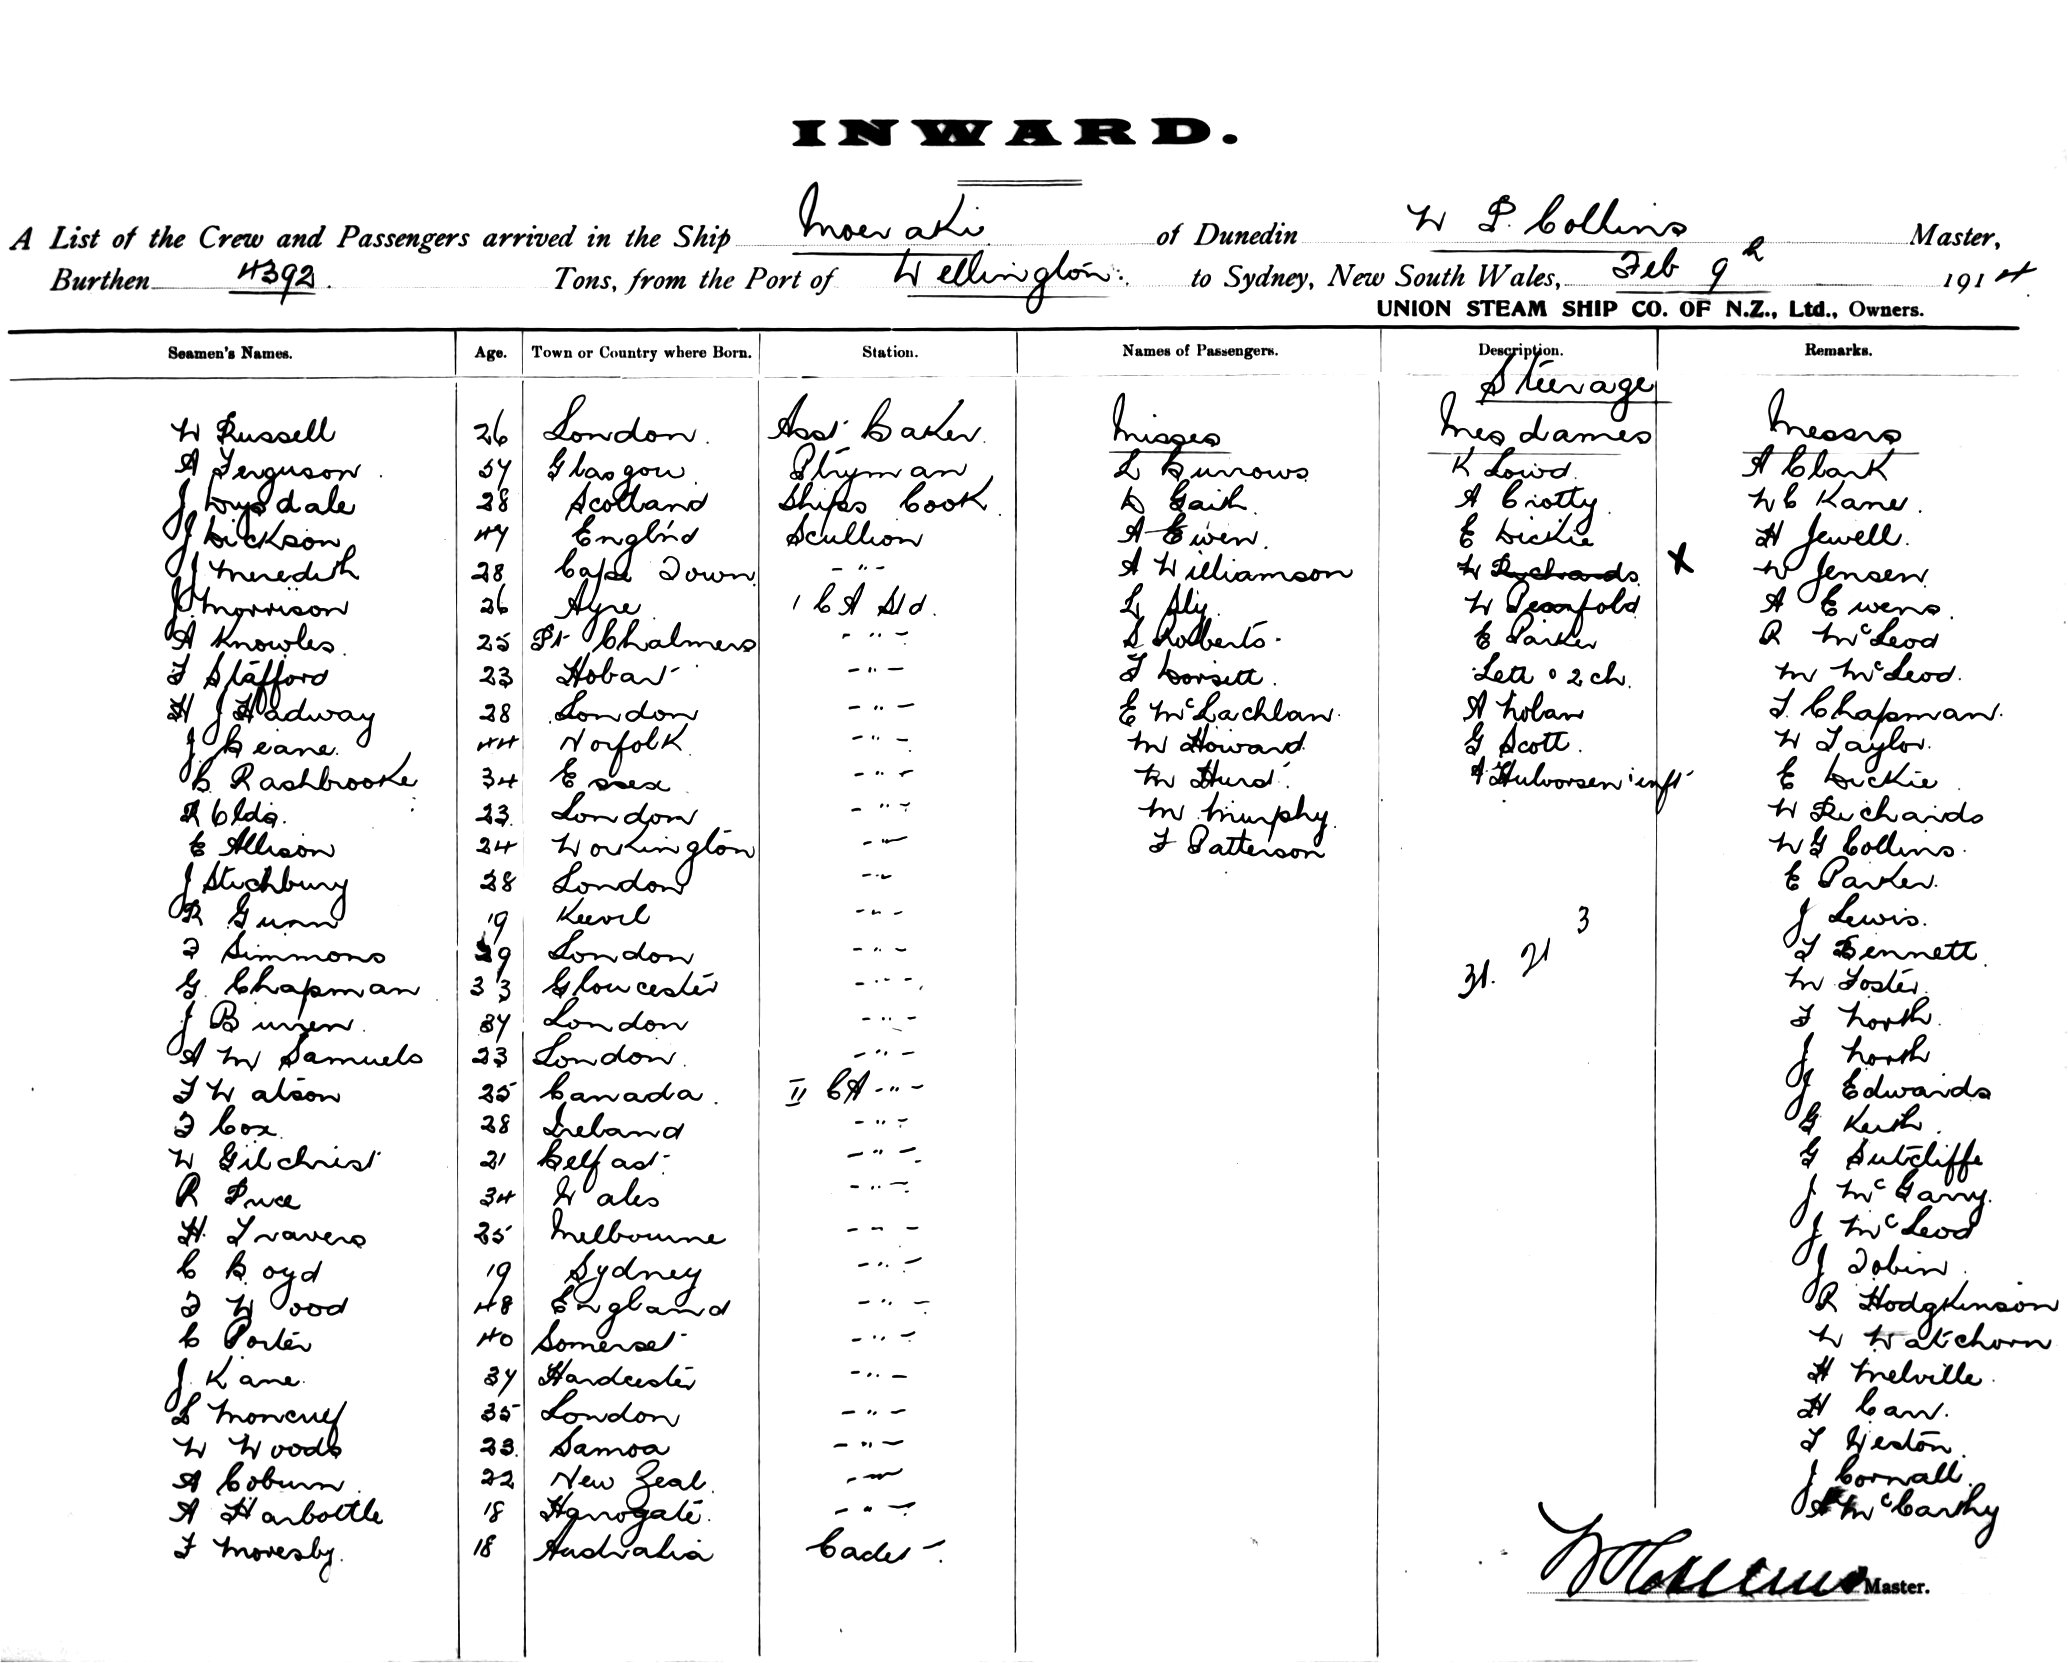 INWARD.
A List of the Crew and Passengers arrived in the Ship Moeraki of Dunedin W P. Collins Master,
Burthen 4392 Tons, from the Port of Wellington to Sydney, New South Wales, Feb 9th 1914
UNION STEAM SHIP CO. OF N.Z., Ltd., Owners.
Seamen's Names. Age. Town or Country where Born. Station. Names of Passengers. Description. Remarks.
Steerage
W Russell 26 London. Asst Baker. Misses Mesdames Messrs
A Ferguson 37 Glasgow Ptryman L Burrows K Lowd A Clark
J Drysdale 28 Scotland Ships Cook D Gaith A Crotty W C Kane
J Dickson 47 Engl'nd Scullion A Ewen. E Dickie H Jewell.
J Meredith 28 Cape Town - " - A Williamson W Richards X W Jensen
J. Morrison 26 Ayre 1 C A Std. L Sly W Penfold A Ewens.
A Knowles 25 Pt Chalmers - " - S Roberts E Parker R McLeod
F Stafford 23 Hobart - " - F Dorsett. Lett " 2 ch. M McLeod.
H J Hadway 28 London - " - E McLachlan. A Nolan F. Chapman.
J Beane. 44 Norfolk - " - M Howard G Scott. W Taylor.
B Rashbrooke 34 Essex - " - M Hurd A Hulvorsen inft E Dickie
R Olds. 23 London - " - M Murphy W Richards
E Allison 24 Workington - " - F Patterson W G Collins.
J Stichbury 28 London - " - E Parker.
R Gunn 19 Keevil - " - 3 J Lewis.
F Simmons 29 London - " - 31. 21 F Bennett
G. Chapman 33 Gloucester - " - M Foster
J Burren. 37 London - " - F North
A M Samuels 23 London. - " - J North
F Watson 25 Canada. II C A - " - J Edwards
F Cox. 28 Ireland - " - G Keith
W Gilchrist 21 Belfast - " - G Sutcliffe
R Price 34 Wales - " - J McGarry.
H. Travers 25 Melbourne - " - J McLeod
C Boyd 19 Sydney - " - J Tobin
F Wood 48 England - " - R Hodgkinson
C Porter 40 Somerset - " - W Watchorn
J. Kane. 37 Hardcester - " - H Melville.
L Moncrief 35 London - " - H Carr.
W Woods 23. Samoa - " - F Weston.
A Coburn 22 New Zeal. - " - J Cornall.
A Harbottle 18 Harrogate. - " - A McCarthy
F Moresby. 18 Australia Cadet.
W P Collins Master.